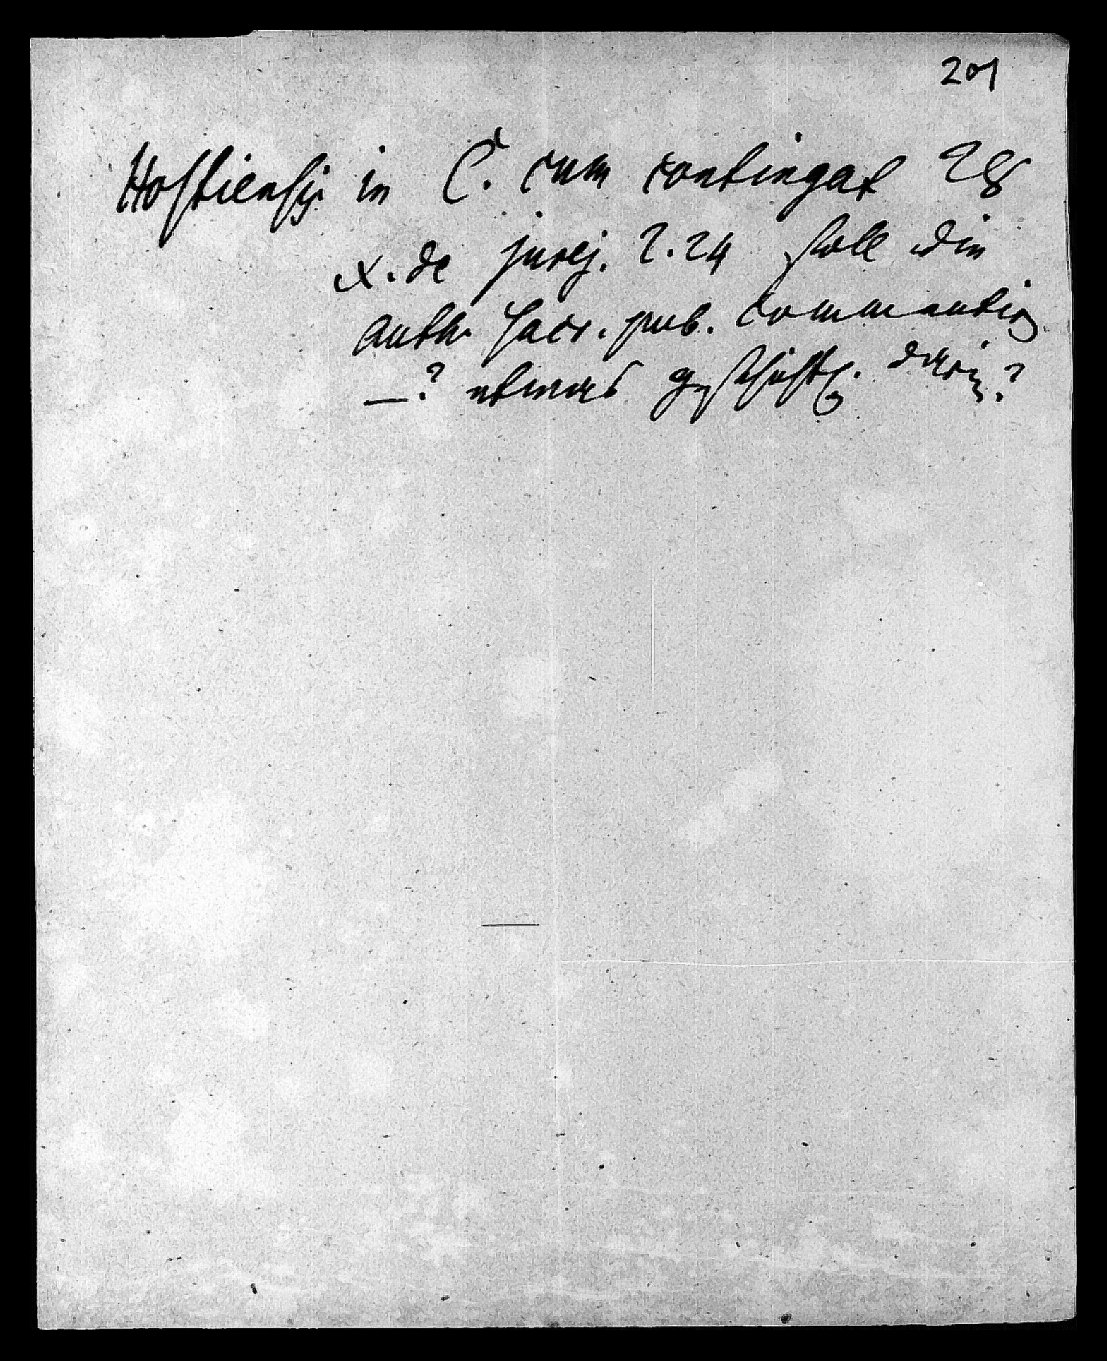 201
Hostiensis in C. cum contingat 28
X. de jurej. 2.24 soll die
auth. sacr. pub. commentiren
—? etwas geschichtl. darin?